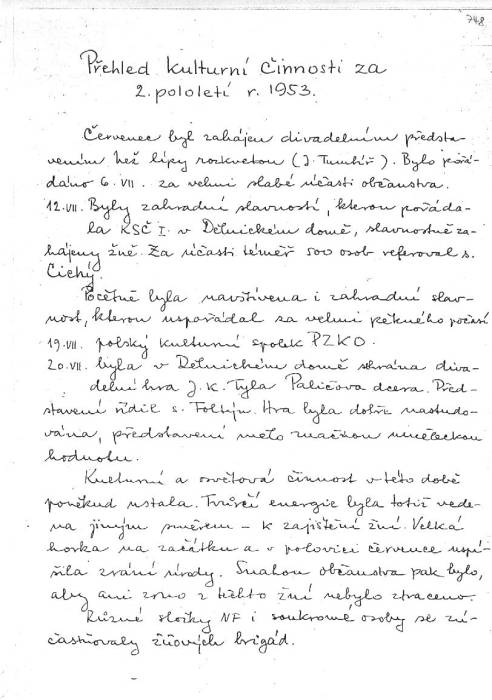 748
Přehled kulturní činnosti za
2. pololetí r. 1953.
Červenec byl zahájen divadelním předsta-
vením než lípy rozkvetou (J. Tumlíř). Bylo pořá-
dáno 6. VII. za velmi slabé účasti občanstva.
12. VII. Byly zahradní slavností, kterou pořáda-
la KSČ I. v Dělnickém domě, slavnostně za-
hájeny žně. Za účasti téměř 500 osob referoval s.
Cichý.
Početně byla navštívena i zahradní slav-
nost, kterou uspořádal za velmi pěkného počasí
19. VII. polský kulturní spolek PZKO.
20. VII. byla v Dělnickém domě sehrána diva-
delní hra J. K. Tyla Paličova dcera. Před-
stavení řídil s. Foltýn. Hra byla dobře nastudo-
vána, představení mělo značnou uměleckou
hodnotu.
Kulturní a osvětová činnost v této době
poněkud ustala. Tvůrčí energie byla totiž vede-
na jiným směrem – k zajištění žní. Velká
horka na začátku a v polovici července uspí-
šila zrání úrody. Snahou občanstva pak bylo,
aby ani zrno z těchto žní nebylo ztraceno.
Různé složky NF i soukromé osoby se zú-
častňovaly žňových brigád.